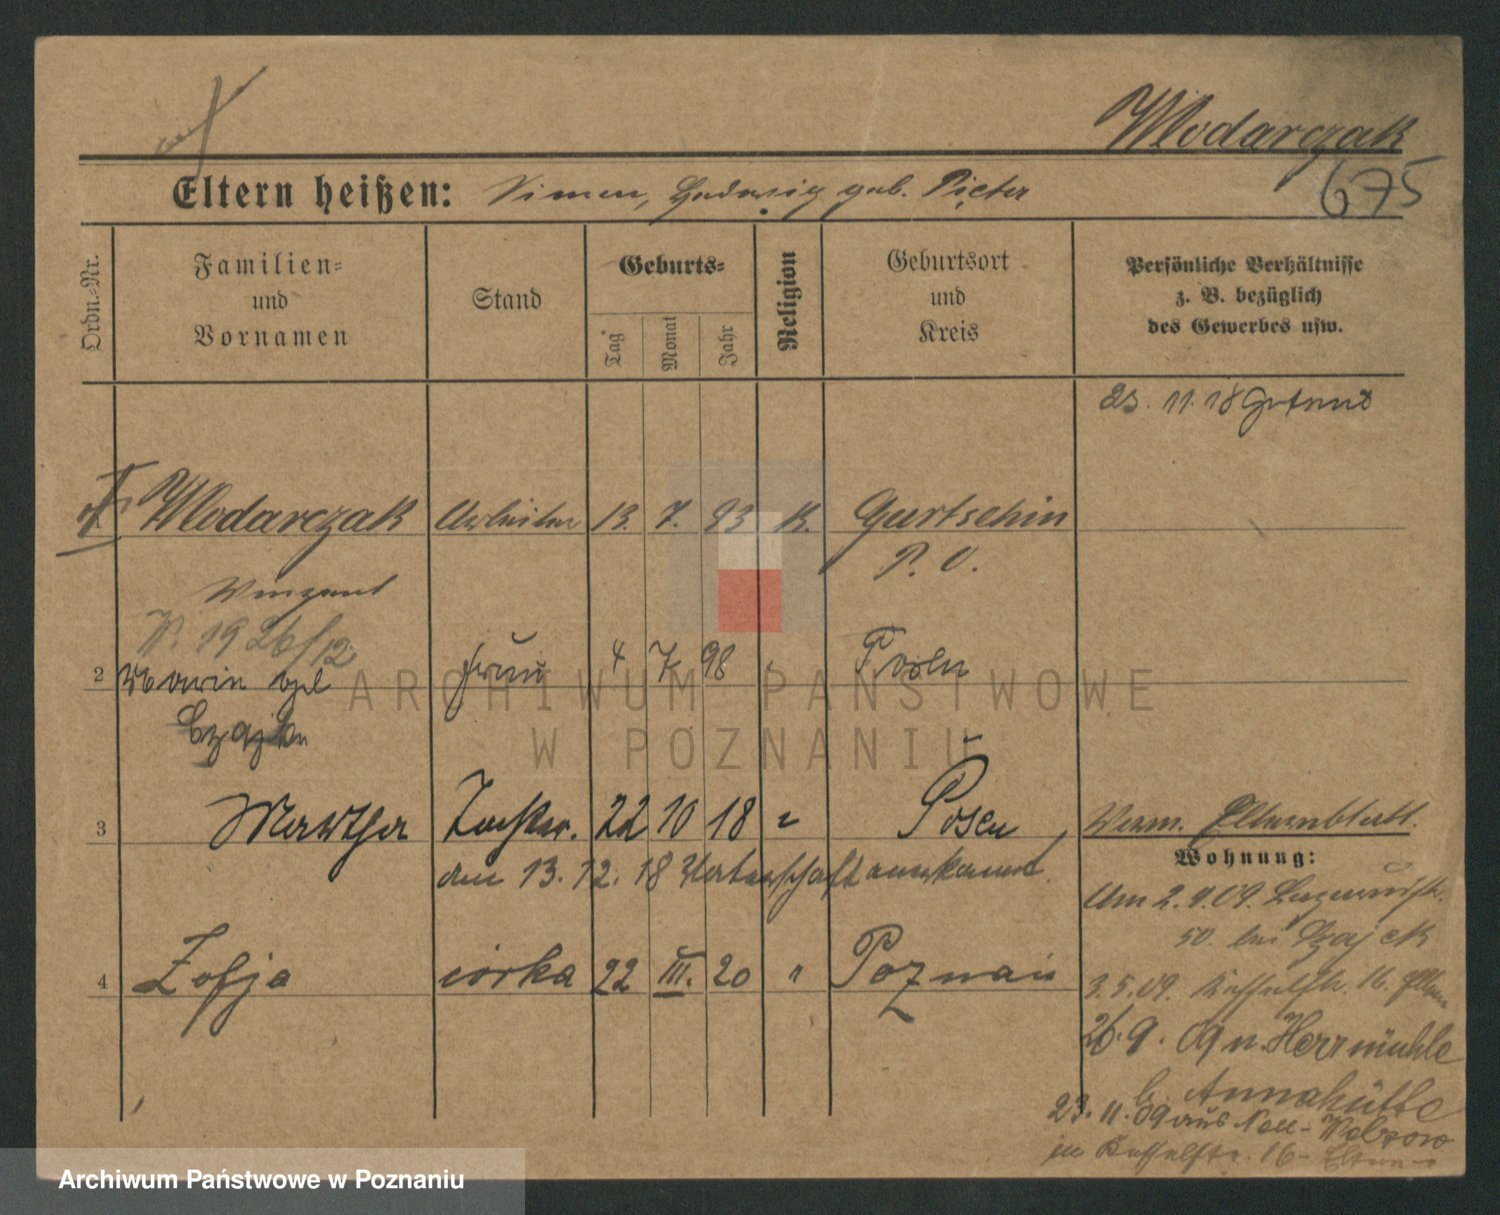 Wlodarczak
675
Eltern heißen: Simon, Hedwig geb. Pieter
Ordn.-Nr.
Familien-
und
Vornamen
Stand
Geburts-
Tag
Monat
Jahr
Religion
Geburtsort
und
Kreis
Persönliche Verhältnisse
z. B. bezüglich
des Gewerbes usw.
23. 11. 18 Getraut
1 Wlodarczak Arbeiter 13. 7. 93 K. Gurtschin
P. O.
Vinzent
V. 19 26/12
2 Maria geb frau 4 7 98 " Posen
3 Martha Tochter. 22 10 18 " Posen
den 13. 12. 18 Vaterschaft anerkannt
Verm. Elternblatt.
Wohnung:
Am 2. 1. 09.
50. bei Zajcek
4 Zofja córka 22 III. 20 " Poznań
3. 5. 09. 16. Eltern
26. 9. 09 n. Herrmühle
b. Annahütte
23. 11. 09 aus Neu-
in 16 - Eltern
ARCHIWUM PAŃSTWOWE
W POZNANIU
Archiwum Państwowe w Poznaniu